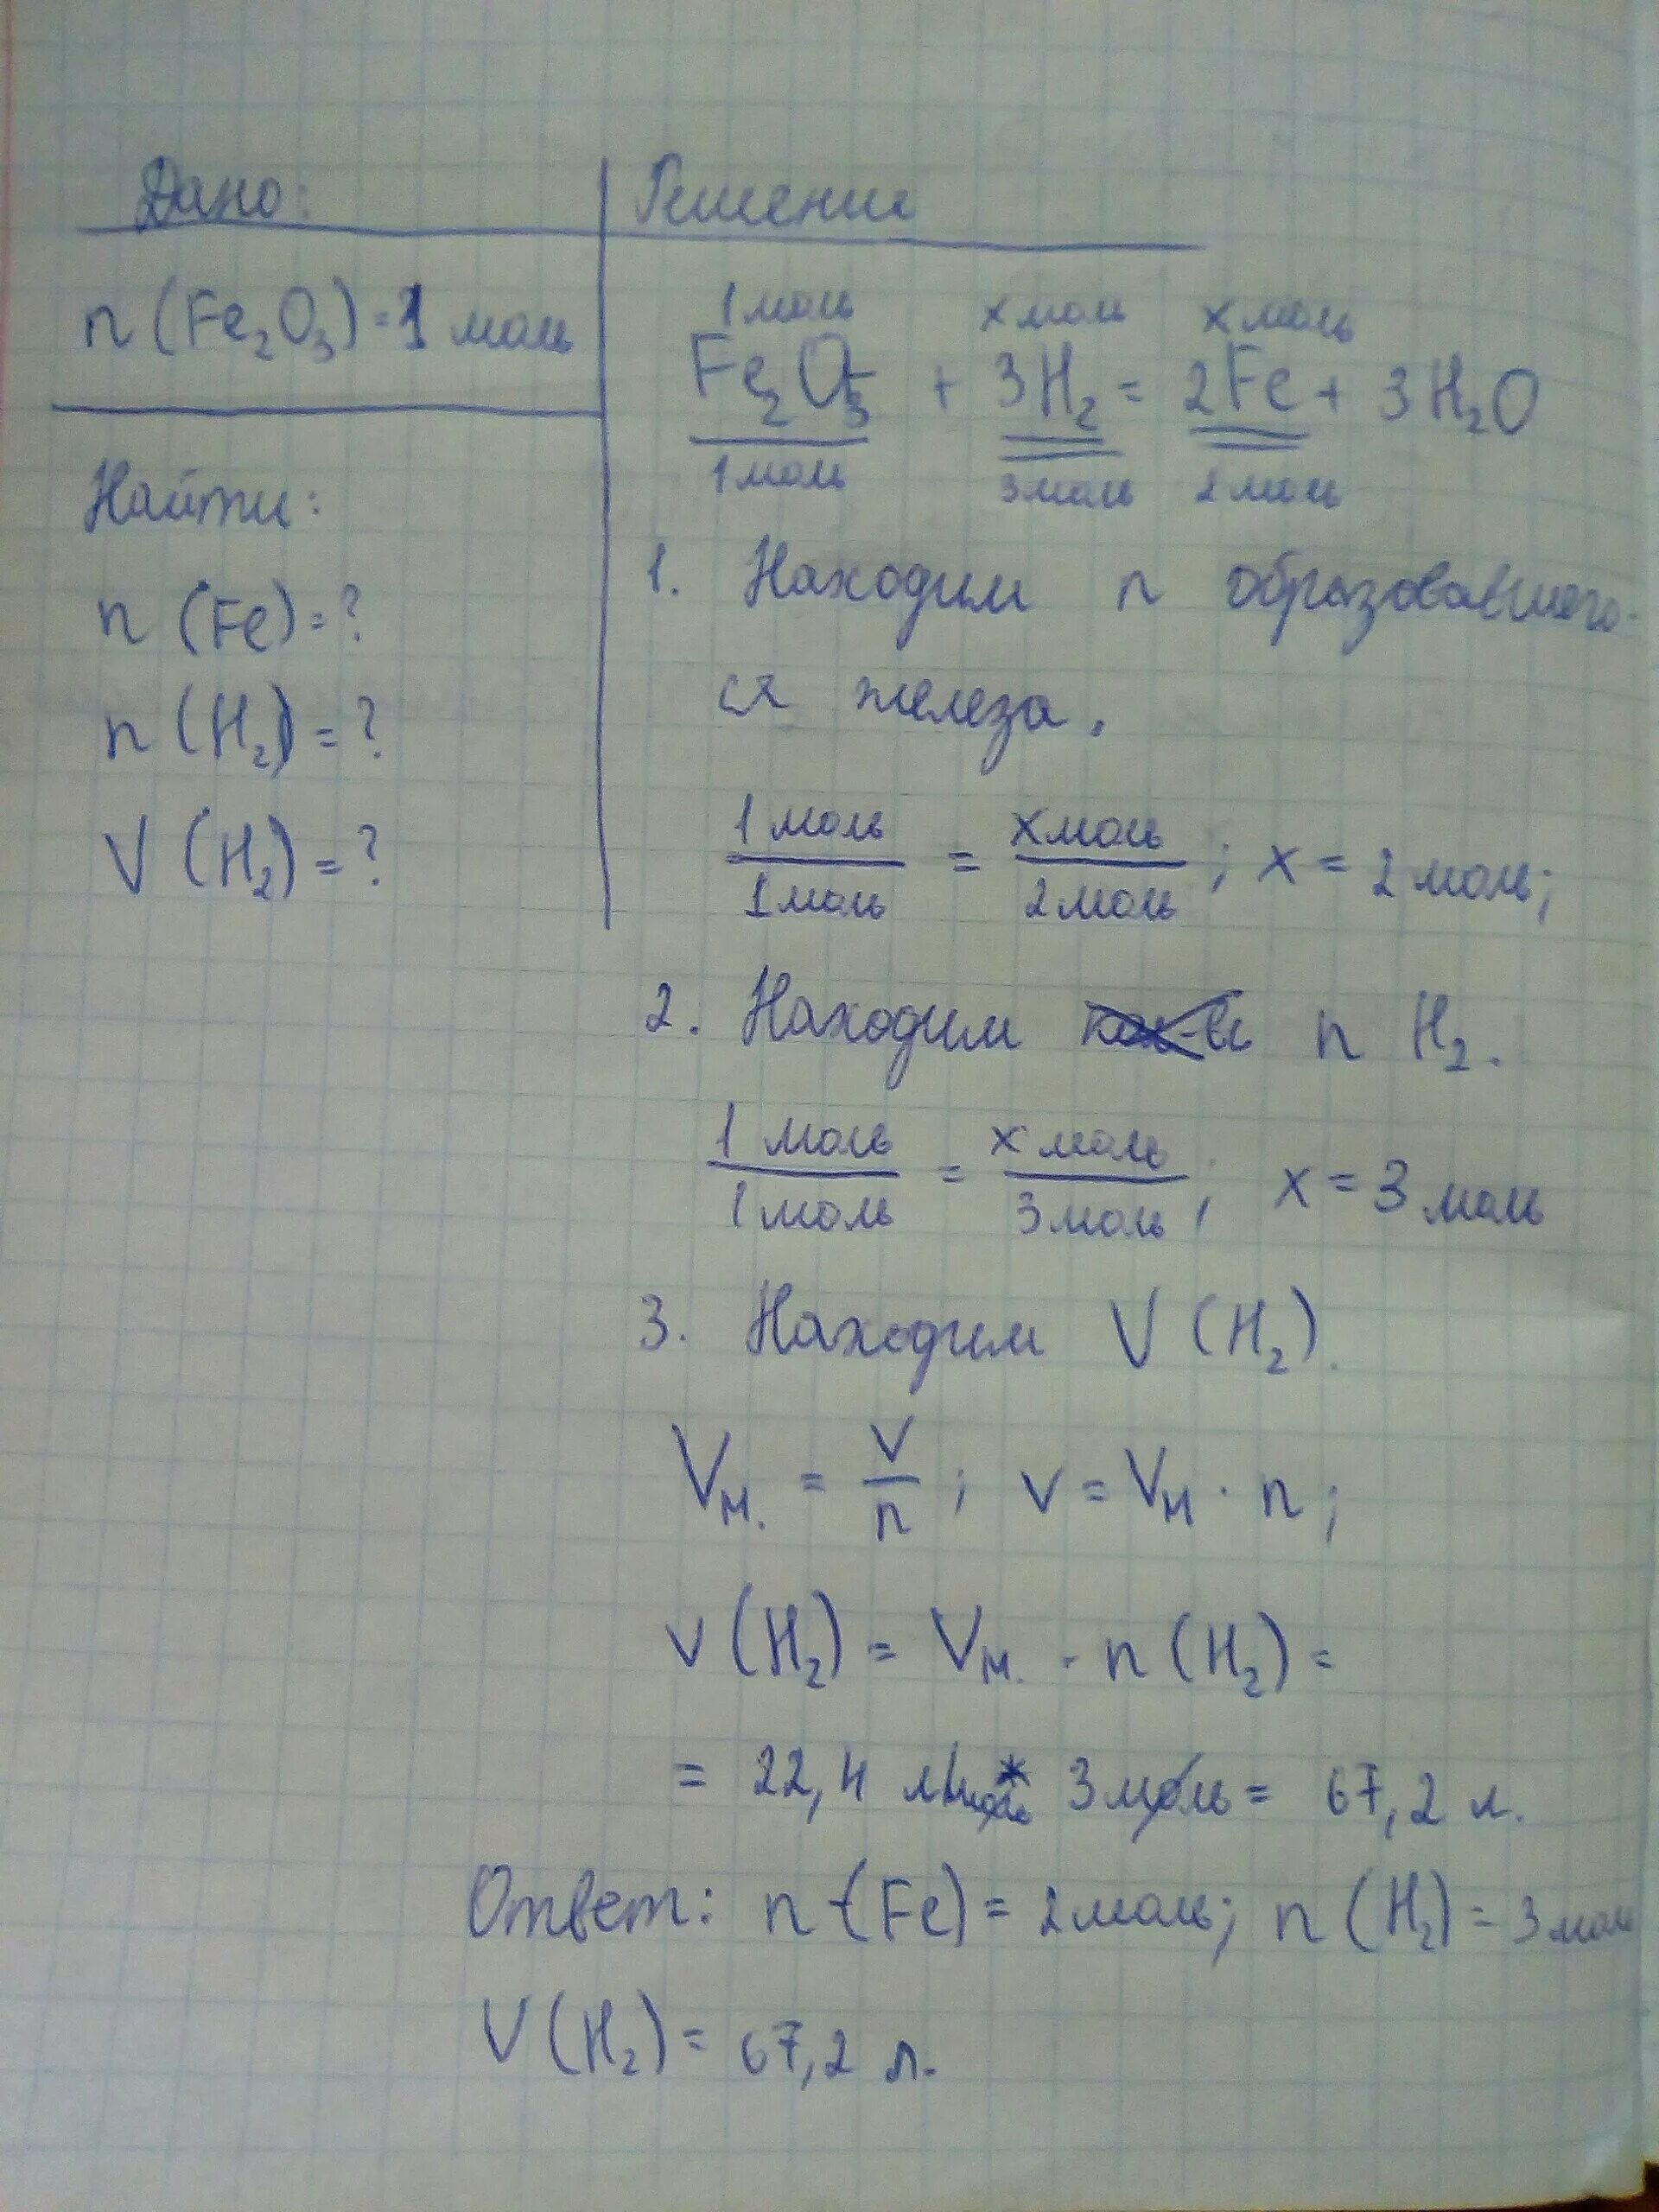 Дано:
n (Fe₂O₃) = 1 моль
Найти:
n (Fe) = ?
n (H₂) = ?
V (H₂) = ?
Решение
1 моль x моль x моль
Fe₂O₃ + 3H₂ = 2Fe + 3H₂O
1 моль 3 моль 2 моль
1. Находим n образовавшего-
ся железа.
1 моль / 1 моль = x моль / 2 моль ; x = 2 моль;
2. Находим n H₂.
1 моль / 1 моль = x моль / 3 моль ; x = 3 моль
3. Находим V (H₂).
Vм. = V / n ; V = Vм · n ;
V (H₂) = Vм. · n (H₂) =
= 22,4 л/моль * 3 моль = 67,2 л.
Ответ: n (Fe) = 2 моль; n (H₂) = 3 моль
V (H₂) = 67,2 л.